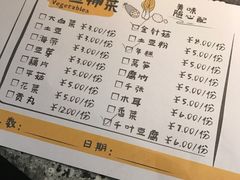 Vegetables
美味
随心配
大白菜 ¥3.00/份
土豆 ¥3.00/份
海带 ¥3.00/份
豆芽 ¥3.00/份
藕片 ¥5.00/份
平菇 ¥5.00/份
花菜 ¥5.00/份
贡丸 ¥12.00/份
金针菇 ¥8.00/份
土豆粉 ¥5.00/份
年糕 ¥5.00/份
莴笋 ¥5.00/份
腐竹 ¥5.00/份
千张 ¥5.00/份
木耳 ¥5.00/份
香菜 ¥5.00/份
千叶豆腐 ¥6.00/份
数:
日期: